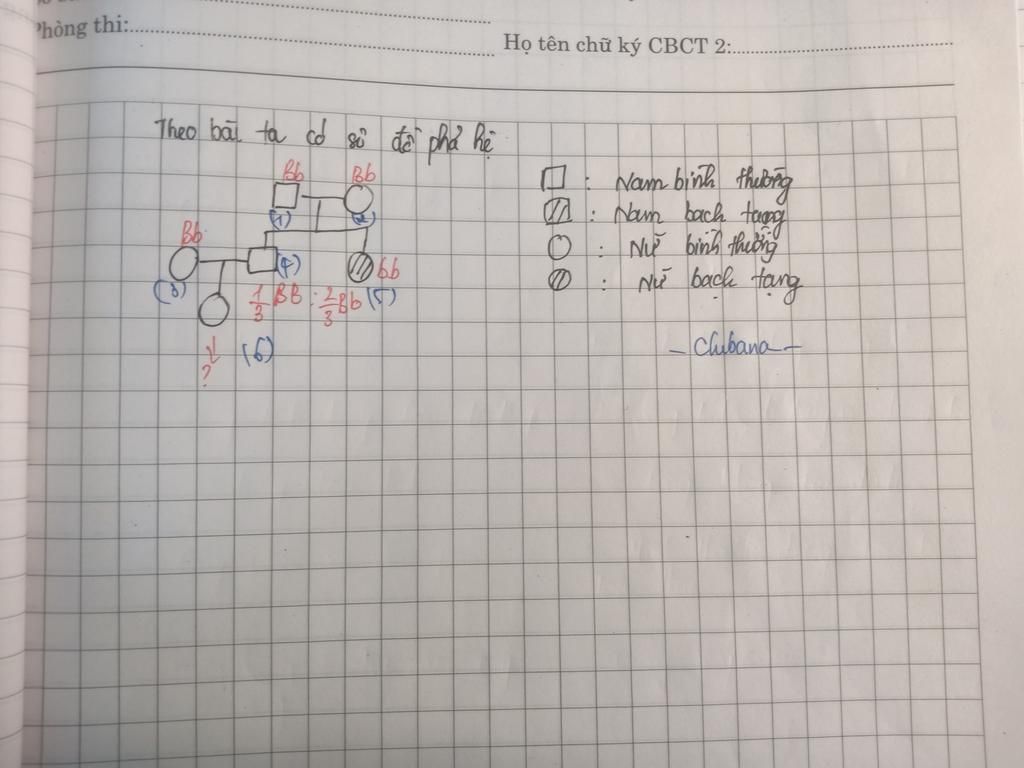 Phòng thi:
Họ tên chữ ký CBCT 2:
Theo bài ta có sơ đồ phả hệ
Bb Bb
□ : Nam bình thường
(1) (2)
▨ : Nam bạch tạng
Bb
○ : Nữ bình thường
(3) (4) bb
: Nữ bạch tạng
1/3 BB : 2/3 Bb (5)
(6)
?
- Chibana -